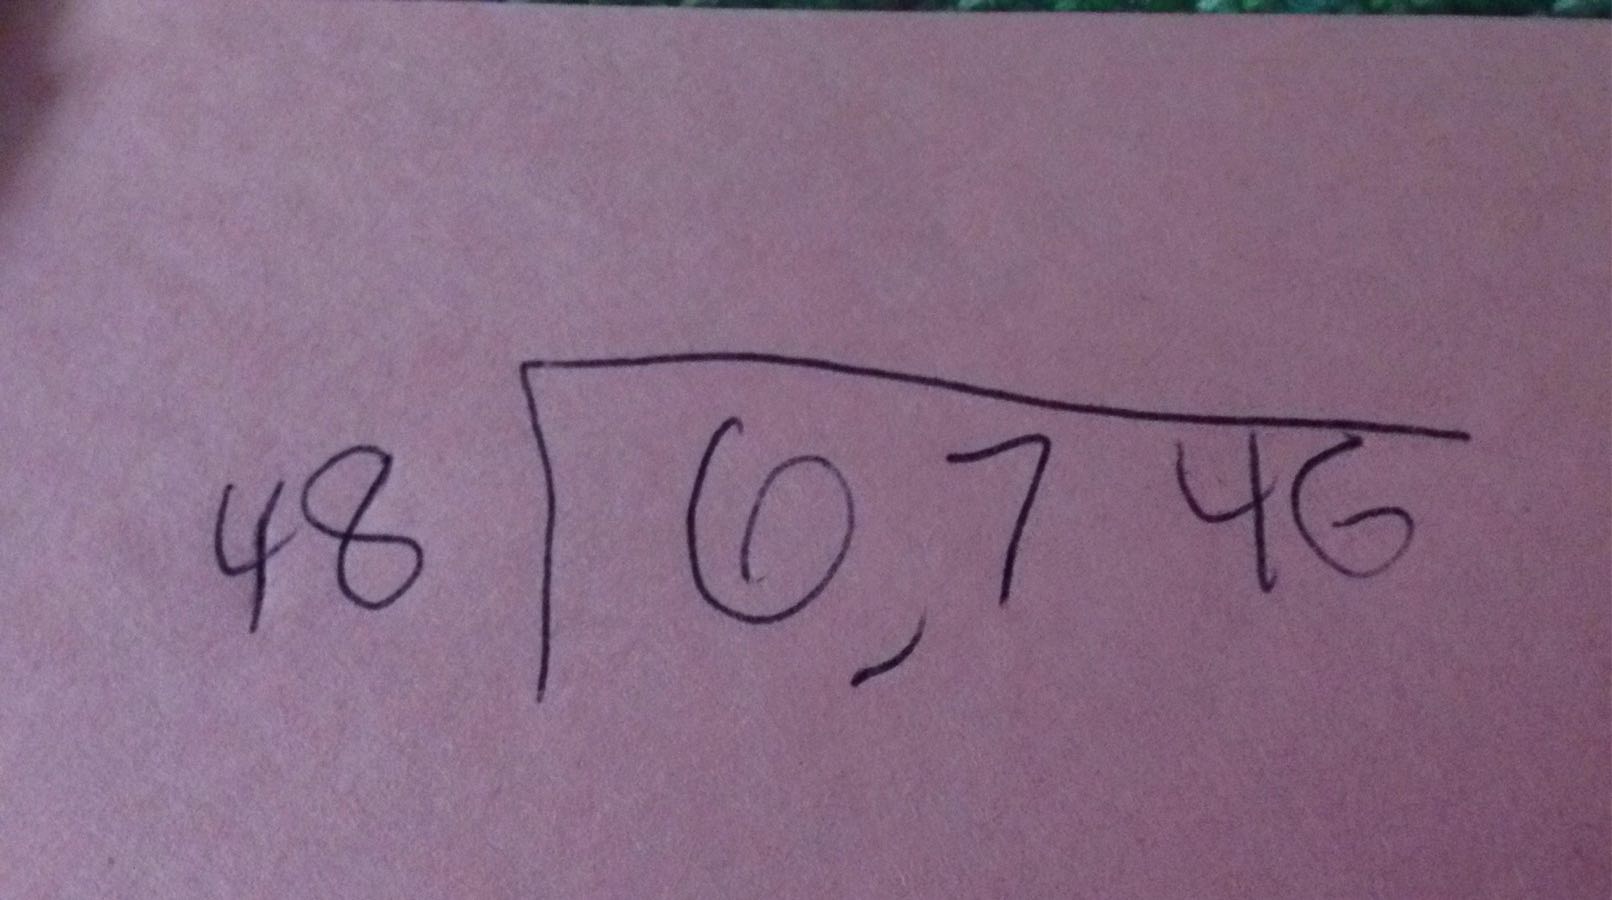 48 6,746